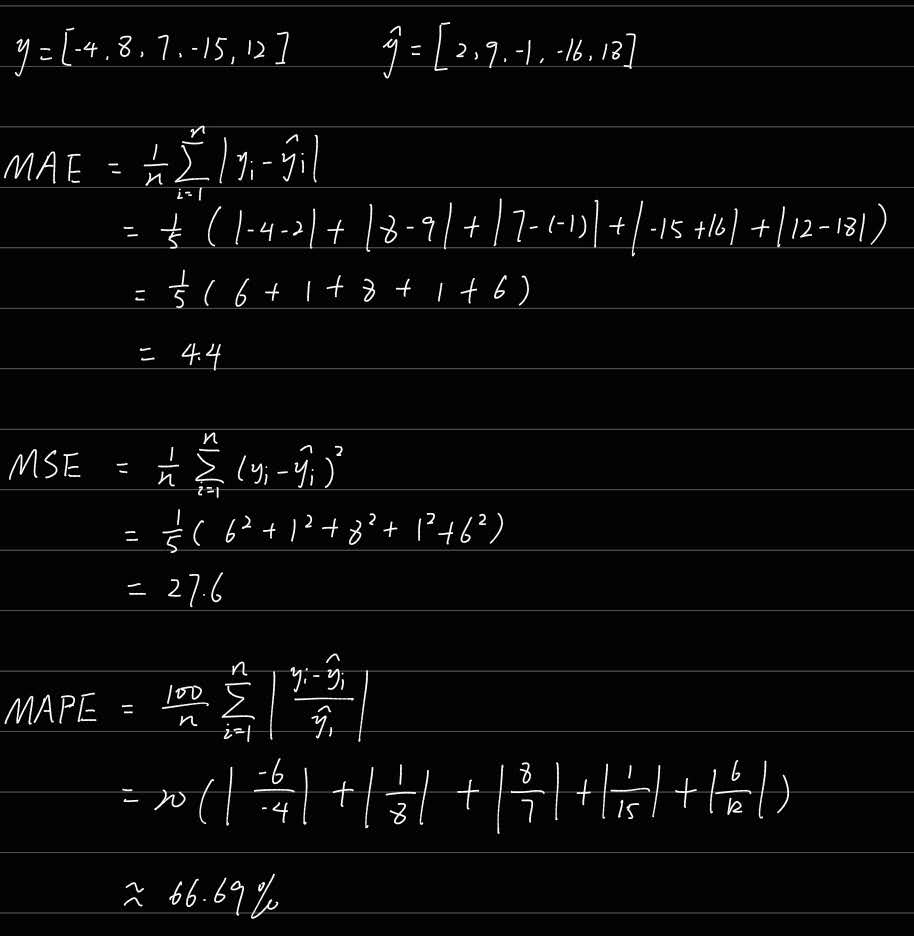 y = [-4, 8, 7, -15, 12] ŷ = [2, 9, -1, -16, 18]
MAE = 1/n ∑_{i=1}^{n} |y_i - ŷ_i|
= 1/5 (|-4-2| + |8-9| + |7-(-1)| + |-15+16| + |12-18|)
= 1/5 (6 + 1 + 8 + 1 + 6)
= 4.4
MSE = 1/n ∑_{i=1}^{n} (y_i - ŷ_i)²
= 1/5 (6² + 1² + 8² + 1² + 6²)
= 27.6
MAPE = 100/n ∑_{i=1}^{n} |(y_i - ŷ_i)/ŷ_i|
= 20 (|-6/-4| + |1/8| + |8/7| + |1/15| + |6/12|)
≈ 66.69%